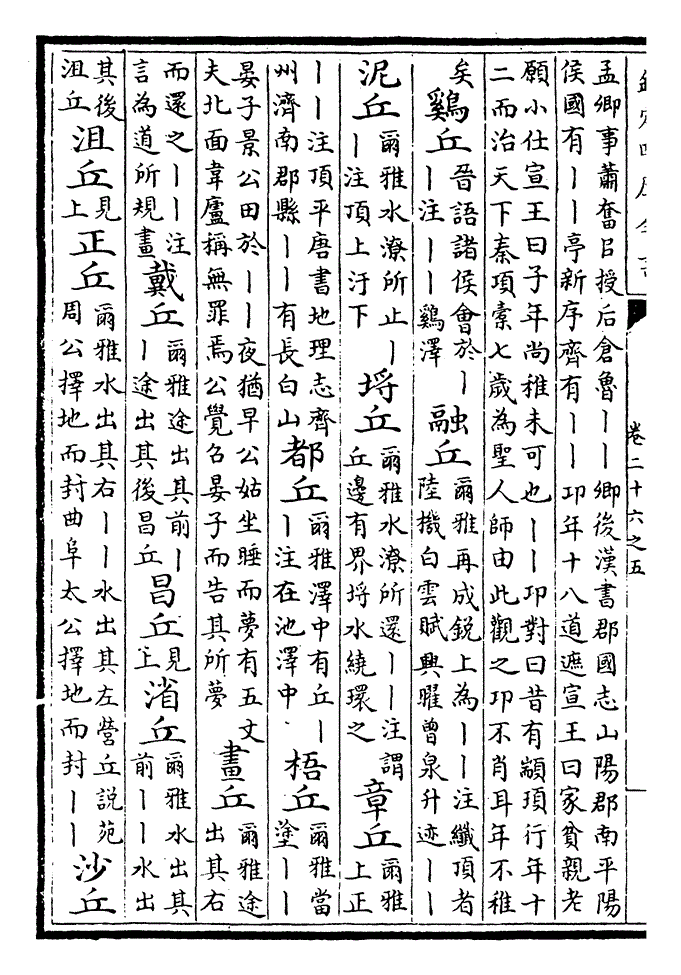 欽定四庫全書
卷二十六之五
孟卿事蕭奮㠯授后倉魯丨丨卿後漢書郡國志山陽郡南平陽
侯國有丨丨亭新序齊有丨丨卭年十八道遮宣王曰家貧親老
願小仕宣王曰子年尚稚未可也丨丨卭對曰昔有顓頊行年十
二而治天下秦項橐七歲為聖人師由此觀之卭不肖耳年不稚
矣 鷄丘 晉語諸侯會於丨丨注丨丨鷄澤 融丘 爾雅再成銳上為丨丨注纖頂者陸機白雲賦興曜曾泉升迹丨丨
泥丘 爾雅水潦所止丨丨注頂上汙下 埒丘 爾雅水潦所還丨丨注謂丘邊有界埒水繞環之 章丘 爾雅上正
丨丨注頂平唐書地理志齊州濟南郡縣丨丨有長白山 都丘 爾雅澤中有丘丨丨注在池澤中 梧丘 爾雅當塗丨丨
晏子景公田於丨丨夜猶早公姑坐睡而夢有五丈夫北面韋廬稱無罪焉公覺召晏子而告其所夢 畫丘 爾雅途出其右
而還之丨丨注言為道所規畫 戴丘 爾雅途出其前丨丨途出其後昌丘 昌丘 見上 渻丘 爾雅水出其前丨丨水出
其後沮丘 沮丘 見上 正丘 爾雅水出其右丨丨水出其左營丘說苑周公擇地而封曲阜太公擇地而封丨丨 沙丘